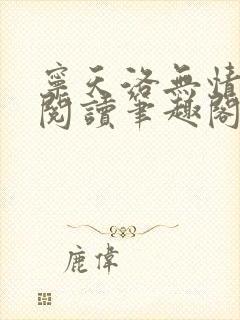 寧天洛無情
閱讀筆趣閣
鹿偉